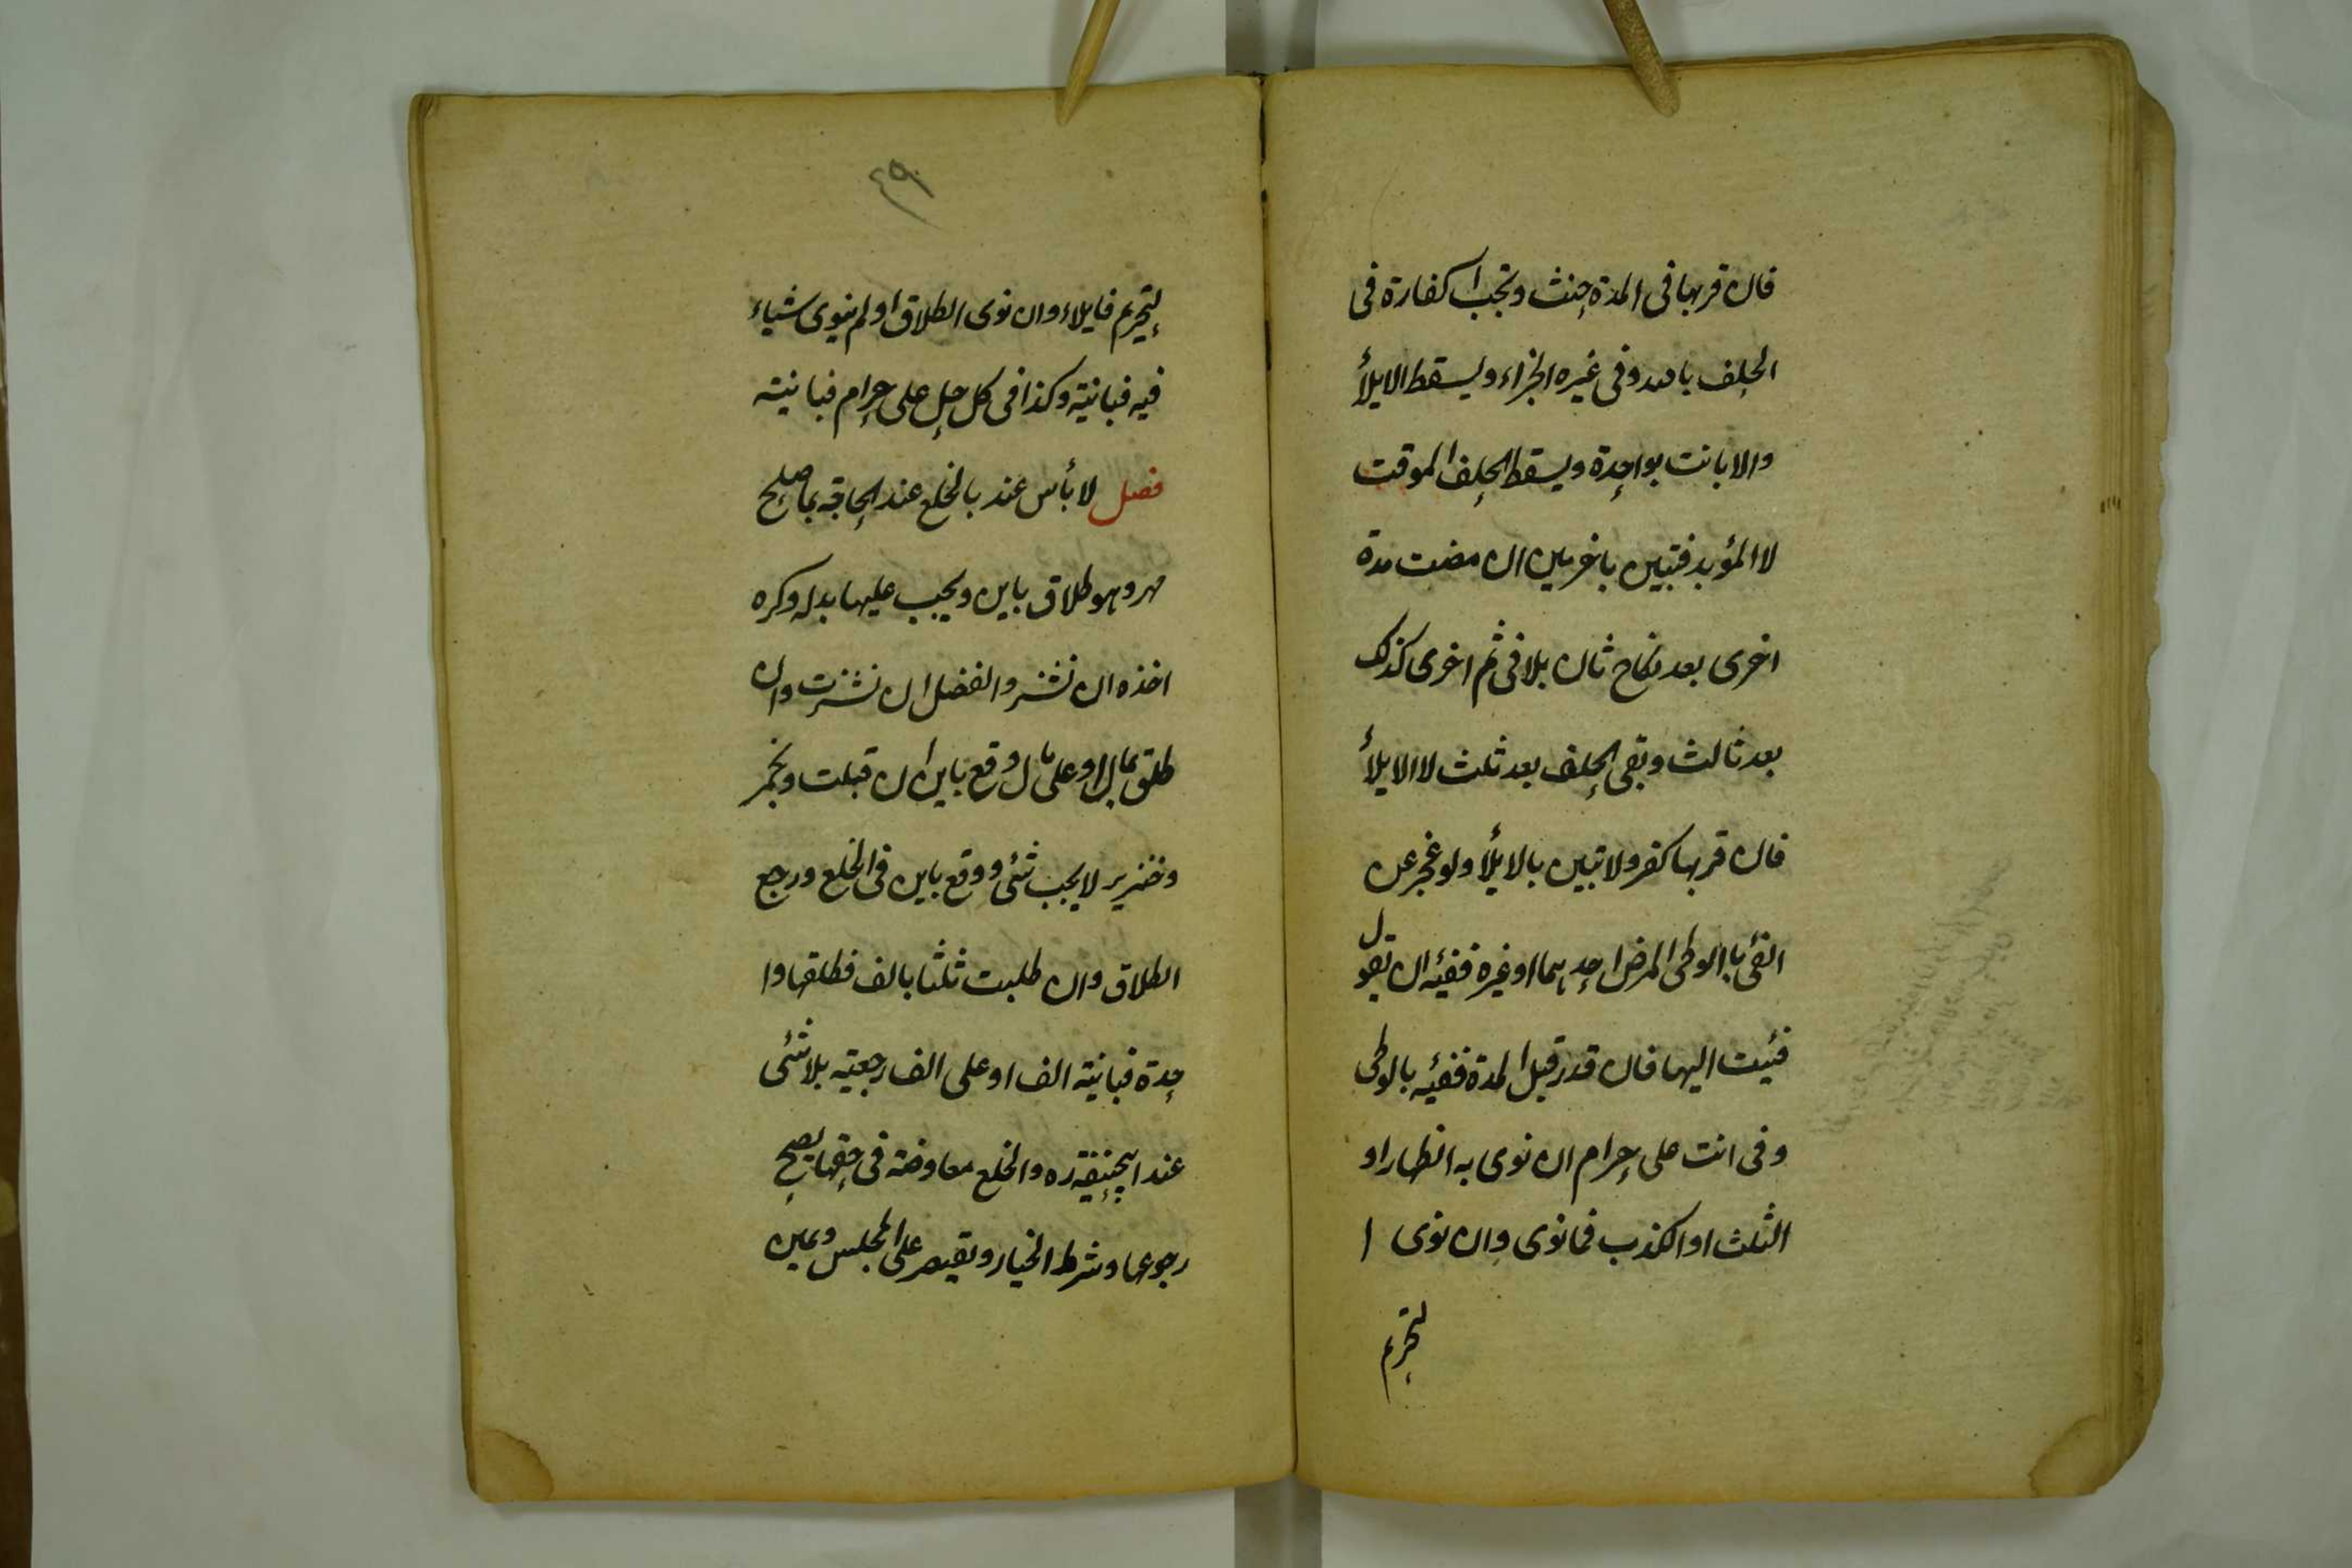 فان قربها فى المدة حنث وتجب الكفارة فى
الحلف بالله وفى غيره الجزاء ويسقط الايلأ
والا بانت بواحدة ويسقط الحلف الموقت
لا المؤبد فتبين باخرين ان مضت مدة
اخرى بعد نكاح ثان بلا فئ ثم اخرى كذلك
بعد ثالث وبقى الحلف بعد ثلث لا الايلأ
فان قربها كفر ولا تبين بالايلأ ولو عجز عن
الفئ باالوطى المرض احدهما او غيره ففيئه ان تقول
فئيت اليها فان قدر قبل المدة ففيئه بالوطى
وفى انت على حرام ان نوى به الظهار او
الثلث او الكذب فما نوى وان نوى ا
لتحريم
٤٩
لتحريم فايلاء وان نوى الطلاق او لم ينوى شياء
فيه فبانية وكذا فى كل حل على حرام فبانية
فصل لا بأس عند بالخلع عند الحاجة بما صلح
مهر وهو طلاق باين ويجب عليها بدله وكره
اخذه ان نشز والفضل ان نشزت وان
طلق بمال او على مال وقع باين ان قبلت وبخمر
وخنزير لا يجب شئ ووقع باين فى الخلع ورجع
الطلاق وان طلبت ثلثا بالف فطلقها وا
حدة فبانية الف او على الف رجعية بلا شئ
عند ابيحنيفة ره والخلع معاوضة فى حقها يصح
رجوعها وشرط الخيار ويقتصر على المجلس ويمين